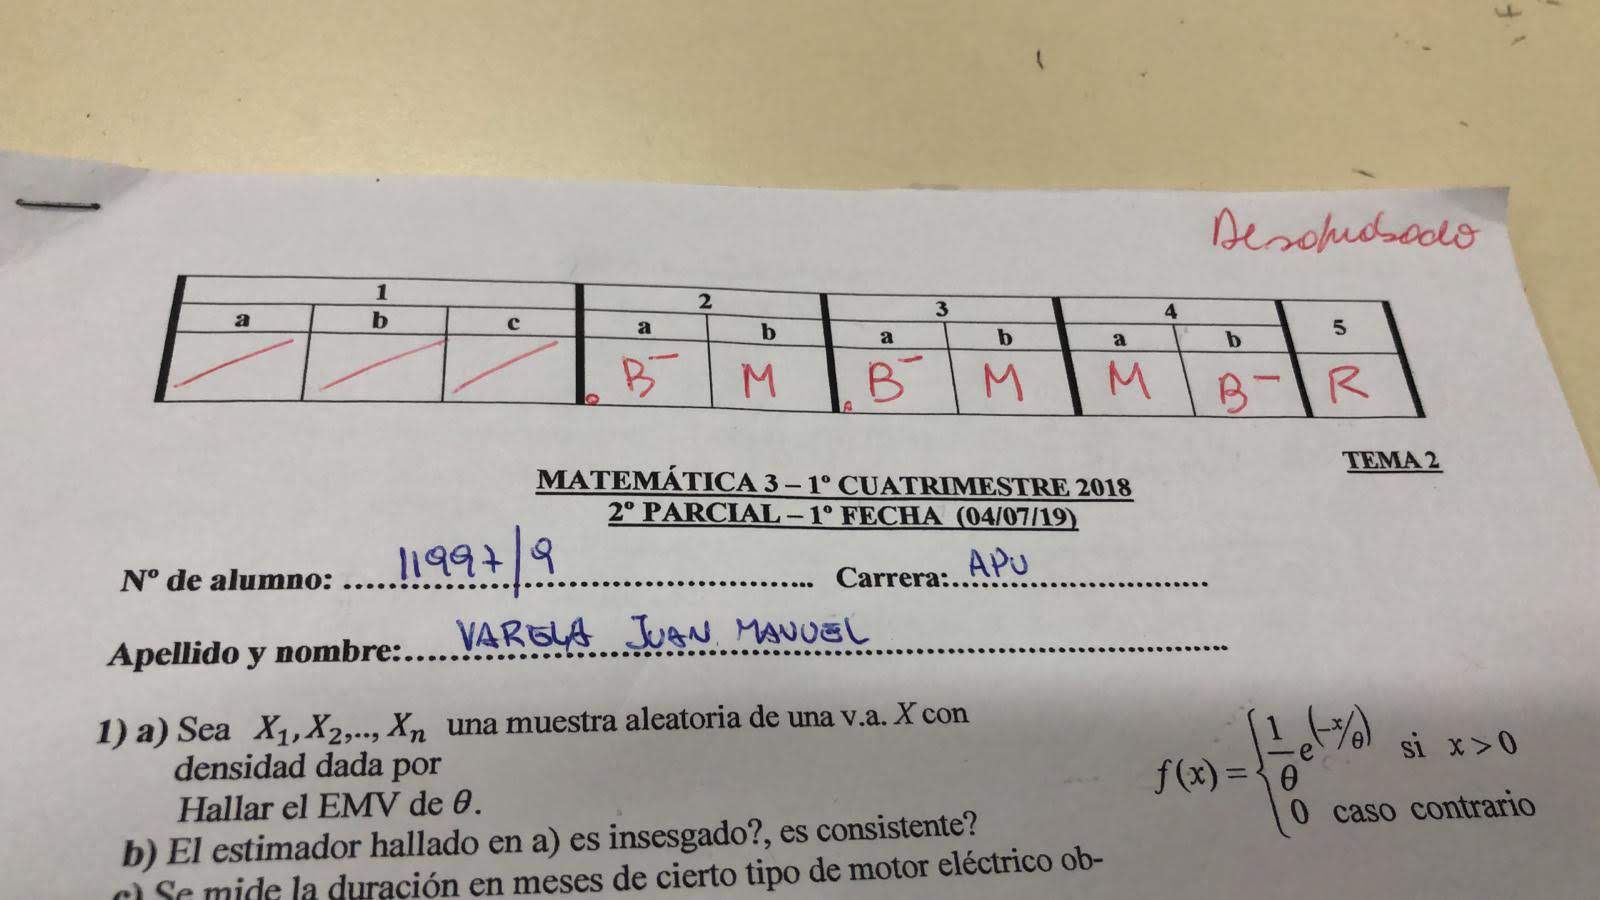 Desaprobado
1 2 3 4 5
a b c a b a b a b
B- M B- M M B- R
TEMA 2
MATEMÁTICA 3 – 1º CUATRIMESTRE 2018
2º PARCIAL – 1º FECHA (04/07/19)
Nº de alumno: 11997/9 Carrera: APU
Apellido y nombre: VARELA JUAN MANUEL
1) a) Sea X₁, X₂,.., Xₙ una muestra aleatoria de una v.a. X con
densidad dada por
f(x) = { 1/θ e^(-x/θ) si x > 0
0 caso contrario
Hallar el EMV de θ.
b) El estimador hallado en a) es insesgado?, es consistente?
c) Se mide la duración en meses de cierto tipo de motor eléctrico ob-